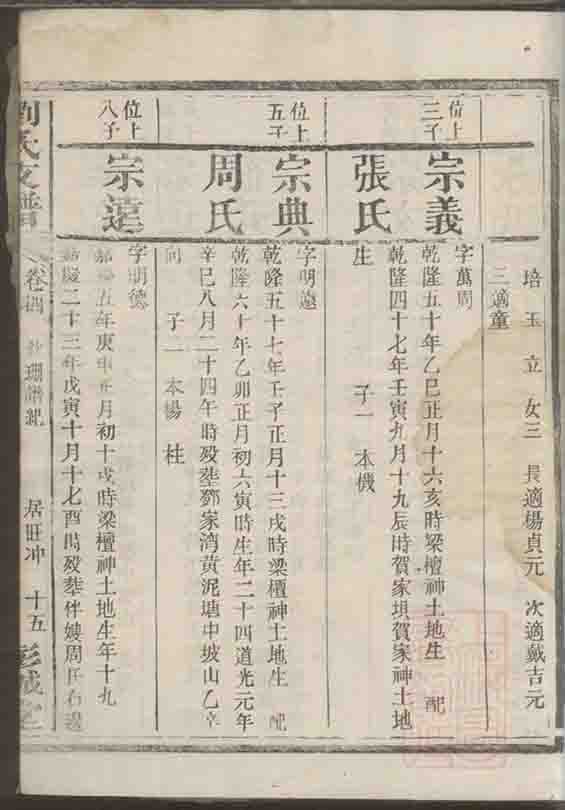 培玉立 女三 長適楊貞元 次適戴吉元
三適童
位上
三子
宗義
字萬周
乾隆五十年乙巳正月十六亥時梁檀神土地生 配
張氏
乾隆四十七年壬寅九月十九辰時賀家垻賀家神土地
生 子一 本機
位上
五子
宗典
字明遠
乾隆五十七年壬子正月十三戌時梁檀神土地生 配
周氏
乾隆六十年乙卯正月初六寅時生年二十四道光元年
辛巳八月二十四午時歿塟鄧家湾黄泥塘中坡山乙辛
向 子二 本楊 柱
位上
八子
宗遠
字明德
五年庚申正月初十戌時梁檀神土地生年十九
二十三年戊寅十月十七酉時歿塟伴嫂周氏右邊
劉氏支譜
卷四 珊譜紀 居旺冲 十五 彭城堂